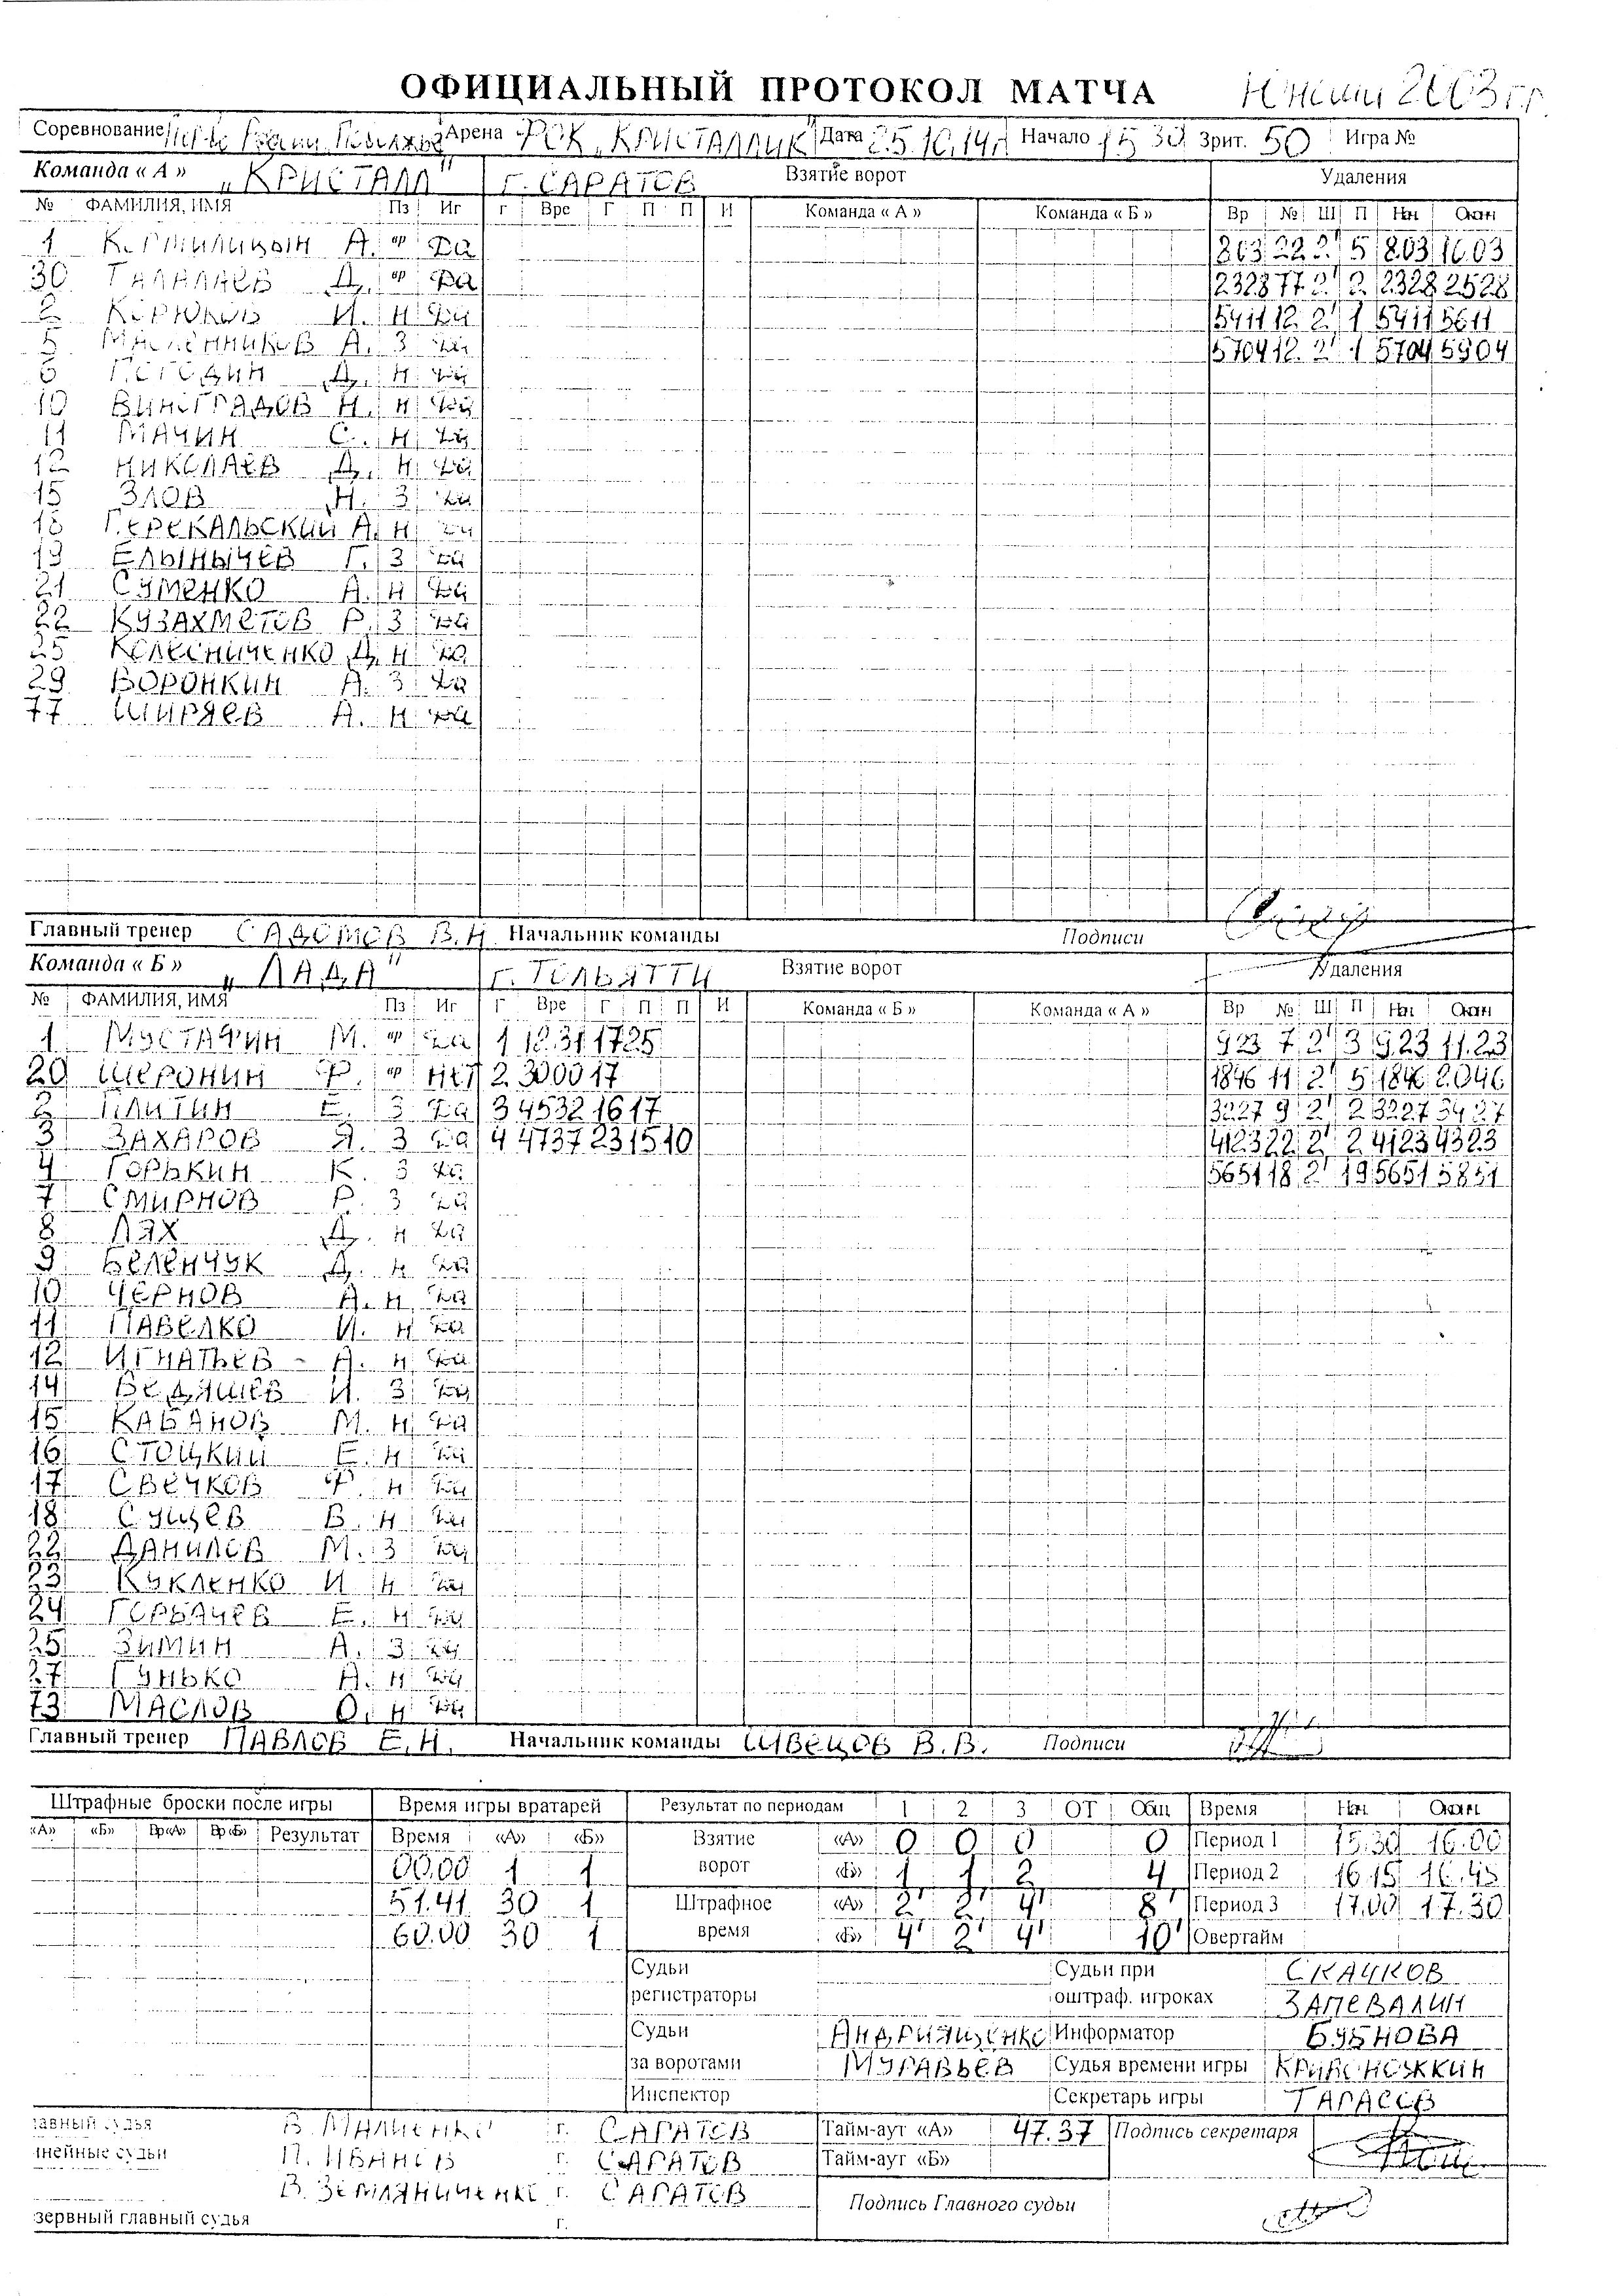 ОФИЦИАЛЬНЫЙ ПРОТОКОЛ МАТЧА Юноши 2003 г.р.
Соревнование Арена ФОК „Кристаллик" Дата 25.10.14г Начало 15 30 Зрит. 50 Игра №
Команда « А » „КРИСТАЛЛ" г. САРАТОВ Взятие ворот Удаления
№ ФАМИЛИЯ, ИМЯ Пз Иг г Вре Г П П И Команда « А » Команда « Б » Вр № Ш П Нач Оконч
1 КОРМИЛИЦЫН А. вр Да 803 22 2' 5 8.03 10.03
30 ТАЛАЛАЕВ Д. вр Да 2328 77 2' 2 2328 2528
2 КОРЮКОВ И. Н Да 5411 12 2' 1 5411 5611
5 МАСЛЕННИКОВ А. З Да 5704 12 2' 1 5704 5904
6 ПОГОДИН Д. Н Да
10 ВИНОГРАДОВ Н. Н Да
11 МАЧИН С. Н Да
12 НИКОЛАЕВ Д. Н Да
15 ЗЛОВ Н. З Да
18 ПЕРЕКАЛЬСКИЙ А. Н Да
19 ЕЛЫНЫЧЕВ Г. З Да
21 СУМЕНКО А. Н Да
22 КУЗАХМЕТОВ Р. З Да
25 КОЛЕСНИЧЕНКО Д. Н Да
29 ВОРОНКИН А. З Да
77 ШИРЯЕВ А. Н Да
Главный тренер САДОМОВ В.Н. Начальник команды Подписи
Команда « Б » „ЛАДА" г. ТОЛЬЯТТИ Взятие ворот Удаления
№ ФАМИЛИЯ, ИМЯ Пз Иг Г Вре Г П П И Команда « Б » Команда « А » Вр № Ш П Нач Оконч
1 МУСТАФИН М. вр Да 1 12.31 17 25 9 23 7 2' 3 9.23 11.23
20 ШЕРОНИН Ф. вр НЕТ 2 3000 17 1846 11 2' 5 1846 2046
2 ПЛИТИН Е. З Да 3 4532 16 17 3227 9 2' 2 3227 3427
3 ЗАХАРОВ Я. З Да 4 4737 23 15 10 4123 22 2' 2 4123 4323
4 ГОРЬКИН К. З Да 5651 18 2' 19 5651 5851
7 СМИРНОВ Р. З Да
8 ЛЯХ Д. Н Да
9 БЕЛЕНЧУК Д. Н Да
10 ЧЕРНОВ А. Н Да
11 ПАВЕЛКО И. Н Да
12 ИГНАТЬЕВ А. Н Да
14 ВЕДЯШЕВ И. З Да
15 КАБАНОВ М. Н Да
16 СТОЦКИЙ Е. Н Да
17 СВЕЧКОВ Ф. Н Да
18 СУЩЕВ В. Н Да
22 ДАНИЛОВ М. З Да
23 КУКЛЕНКО И Н Да
24 ГОРБАЧЕВ Е. Н Да
25 ЗИМИН А. З Да
27 ГУНЬКО А. Н Да
73 МАСЛОВ О. Н Да
Главный тренер ПАВЛОВ Е.Н. Начальник команды ШВЕЦОВ В.В. Подписи
Штрафные броски после игры Время игры вратарей Результат по периодам 1 2 3 ОТ Общ Время Нач Оконч
«А» «Б» Вр«А» Вр«Б» Результат Время «А» «Б» Взятие «А» 0 0 0 0 Период 1 15.30 16.00
00.00 1 1 ворот «Б» 1 1 2 4 Период 2 16.15 16.45
51.41 30 1 Штрафное «А» 2' 2' 4' 8' Период 3 17.00 17.30
60.00 30 1 время «Б» 4' 2' 4' 10' Овертайм
Судьи Судьи при СКАЧКОВ
регистраторы оштраф. игроках ЗАПЕВАЛИН
Судьи АНДРИЯЩЕНКО Информатор БУБНОВА
за воротами МУРАВЬЕВ Судья времени игры КРИВОНОЖКИН
Инспектор Секретарь игры ТАРАСОВ
лавный судья В. МАЛЧЕНКО г. САРАТОВ Тайм-аут «А» 47.37 Подпись секретаря
инейные судьи П. ИВАНОВ г. САРАТОВ Тайм-аут «Б»
В. ЗЕМЛЯНИЧЕНКО г. САРАТОВ Подпись Главного судьи
зервный главный судья г.